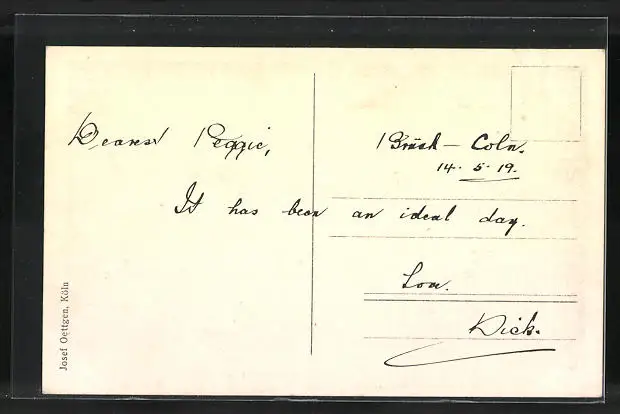 Dearest Peggie,
Brück – Coln.
14. 5. 19.
It has been an ideal day.
Love.
Dick.
Josef Oettgen, Köln